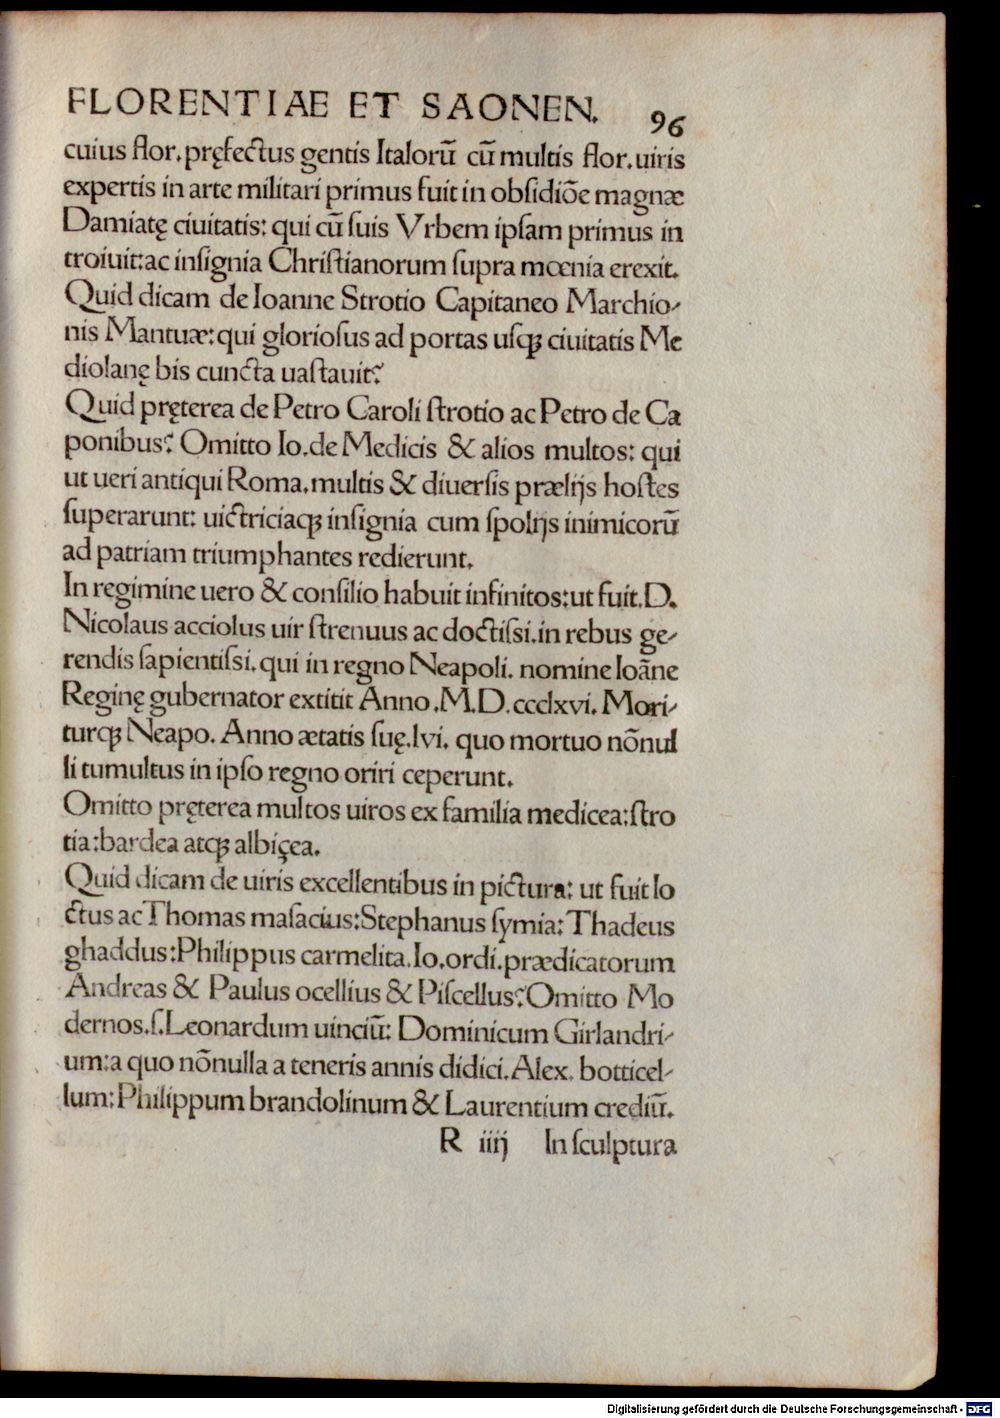 FLORENTIAE ET SAONEN. 96
cuius flor. pręfectus gentis Italorū cū multis flor. uiris
expertis in arte militari primus fuit in obſidiōe magnæ
Damiatę ciuitatis: qui cū ſuis Vrbem ipſam primus in
troiuit: ac inſignia Chriſtianorum ſupra mœnia erexit.
Quid dicam de Ioanne Strotio Capitaneo Marchio-
nis Mantuæ: qui glorioſus ad portas uſqꝫ ciuitatis Me
diolanę bis cuncta uaſtauit?
Quid pręterea de Petro Caroli ſtrotio ac Petro de Ca
ponibus? Omitto Io. de Medicis & alios multos: qui
ut ueri antiqui Roma. multis & diuerſis prælijs hoſtes
ſuperarunt: uictriciaqꝫ inſignia cum ſpolijs inimicorū
ad patriam triumphantes redierunt.
In regimine uero & conſilio habuit infinitos: ut fuit. D.
Nicolaus acciolus uir ſtrenuus ac doctiſſi. in rebus ge-
rendis ſapientiſſi. qui in regno Neapoli. nomine Ioāne
Reginę gubernator extitit Anno .M.D.ccclxvi. Mori-
turqꝫ Neapo. Anno ætatis ſuę. lvi. quo mortuo nōnul
li tumultus in ipſo regno oriri ceperunt.
Omitto pręterea multos uiros ex familia medicea: ſtro
tia: bardea atqꝫ albiçea.
Quid dicam de uiris excellentibus in pictura: ut fuit Io
ctus ac Thomas maſacius: Stephanus ſymia: Thadeus
ghaddus: Philippus carmelita. Io. ordi. prædicatorum
Andreas & Paulus ocellius & Piſcellus? Omitto Mo
dernos. ſ. Leonardum uinciū: Dominicum Girlandri-
um: a quo nōnulla a teneris annis didici. Alex. botticel-
lum: Philippum brandolinum & Laurentium crediū.
R iiij In ſculptura
Digitalisierung gefördert durch die Deutsche Forschungsgemeinschaft - DFG